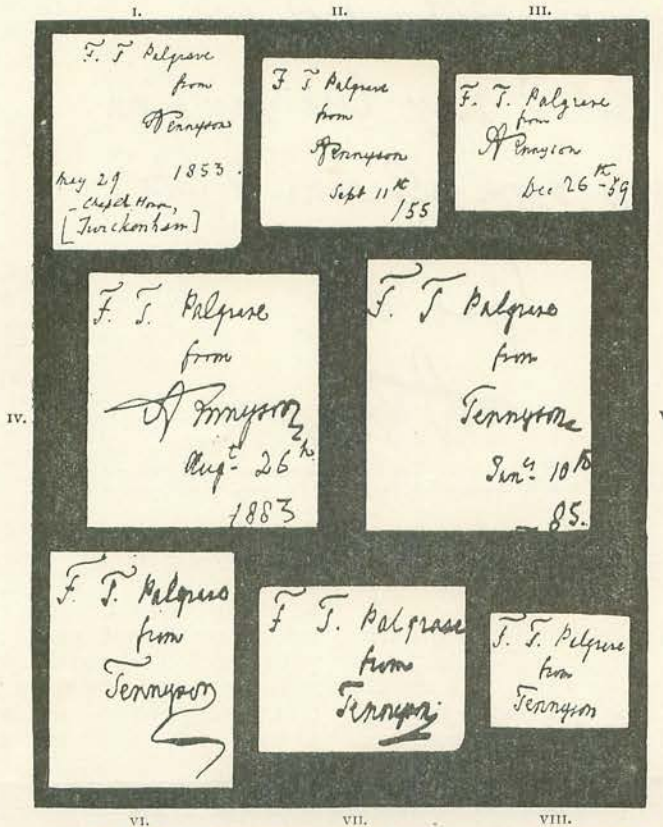 I.
II.
III.
F. T Palgrave
from
ATennyson
May 29 1853.
Chapel House,
[Twickenham]
F T Palgrave
from
ATennyson
Sept 11th
/55
F. T. Palgrave
from
ATennyson
Dec 26th -59
IV.
F. T. Palgrave
from
ATennyson
Augt. 26th.
1883
V
F. T Palgrave
from
Tennyson
Jany. 10th
85.
F. T. Palgrave
from
Tennyson
F T. Palgrave
from
Tennyson
F. T. Palgrave
from
Tennyson
VI.
VII.
VIII.